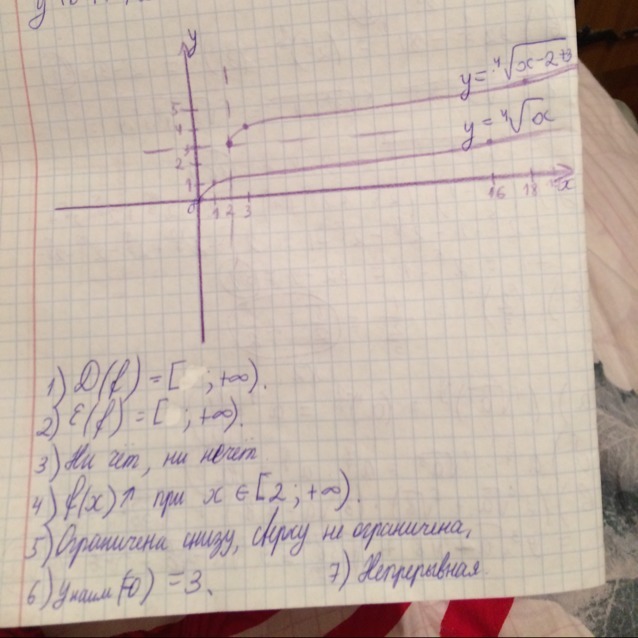 y
5
4
3
2
1
0
1 2 3
16 18
x
y = ⁴√x-2+3
y = ⁴√x
1) D(f) = [ ; +∞).
2) E(f) = [ ; +∞).
3) Ни чет, ни нечет
4) f(x)↑ при x ∈ [2 ; +∞).
5) Ограничена снизу, сверху не ограничена,
6) y наим = 3.
7) Непрерывная